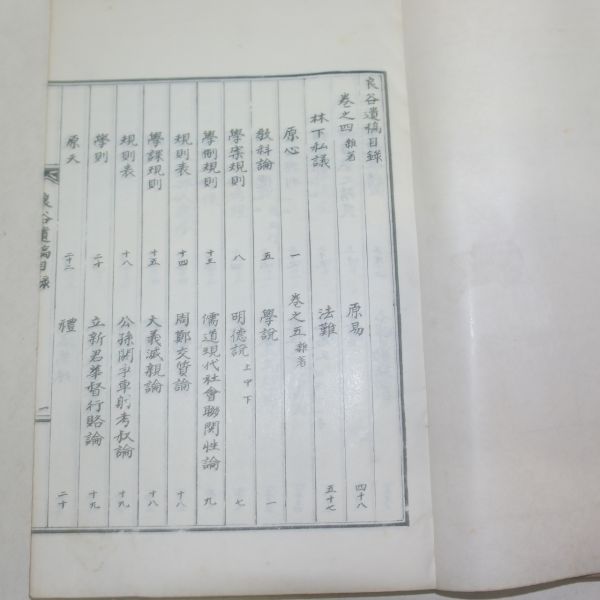 良谷遺稿目錄
卷之四 雜著 原易 四十八
林下私議 法難 五十七
原心 一 卷之五 雜著
教科論 五 學說 一
學案規則 八 明德說 上中下 七
學制規則 十三 儒道現代社會聯関性論 九
規則表 十四 周鄭交質論 十八
學課規則 十五 大義滅親論 十八
規則表 十八 公孫閼爭車射考叔論 十九
學則 二十 立新君華督行賂論 十九
原天 二十二 禮 二十
良谷遺稿目錄 一